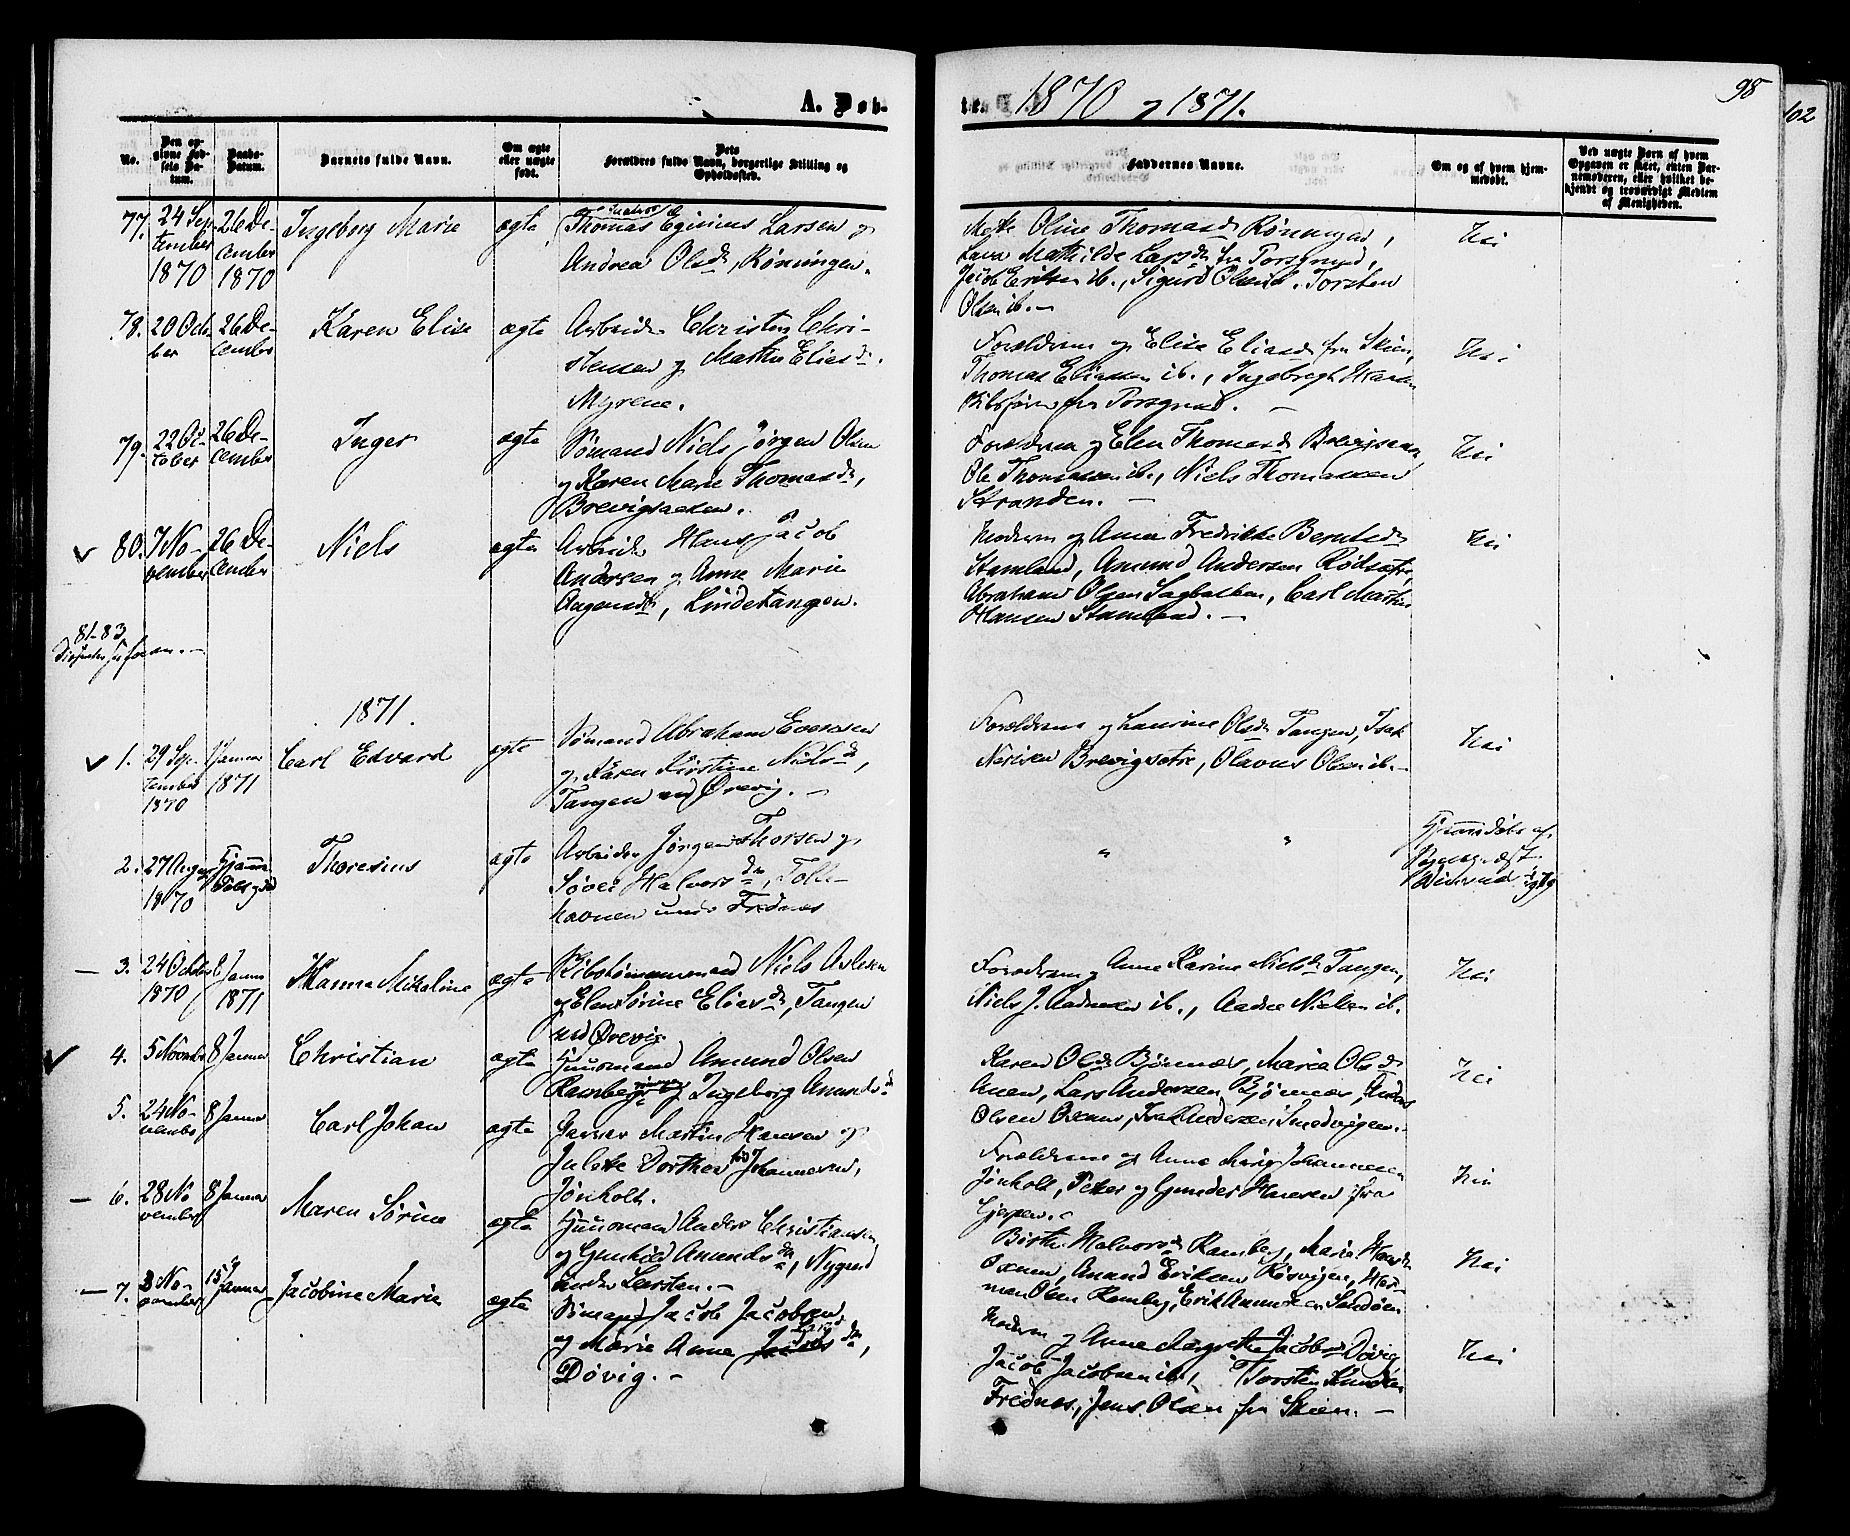 A. Døb-
te. 1870 og 1871.
98
102
No.
Den op-
givne Fød-
sels Da-
tum.
Daabs-
Datum.
Barnets fulde Navn.
Om ægte
eller uægte
født.
Dets
Forældres fulde Navn, borgerlige Stilling og
Opholdssted.
Faddernes Navne.
Om og af hvem hjem-
medøbt.
Ved uægte Børn af hvem
Opgaven er skeet, enten Bar-
nemoderen, eller hvilket be-
kjendt og troværdigt Medlem
af Menigheden.
77.
24 Sep-
tember
1870
26 De-
cember
1870
Ingeborg Marie
ægte
Thomas Eginius Larsen og
Andrea Olsdr, Röningen.
Mette Oline Thomasdr Rönningen,
Mathilde Larsdr fra Porsgrund,
Jacob Eriksen ib., Sigurd Olsen ib. Torsten
Olsen ib. —
Nei
78.
20 Octo-
ber
26 De-
cember
Karen Elise
ægte
Arbeider Christen Chri-
stensen og Marthe Eliasdr.
Myrene.
Forældrene og Elise Eliasdr fra Skien,
Thomas Eliassen ib., Ingebregt
fra Porsgrund. —
Nei
79.
22 Oc-
tober
26 De-
cember
Inger
ægte
Sømand Niels Jörgen Olsen
og Karen Marie Thomasdr,
Brevigsaasen.
Forældrene og Elen Thomasdr Brevigsaasen,
Ole Thomassen ib., Niels Thomassen
Stranden. —
Nei
80.
7 No-
vember
26 De-
cember
Niels
ægte
Arbeider Hans Jacob
Andersen og Anne Marie
Aagensdr, Lindetangen.
Moderen og Anne Fredrikke Berntsdr
Stamland, Amund Andersen Rödsætre,
Abraham Olsen Sagbakken, Carl Martin
Hansen Stamland. —
Nei
81-83
1871.
1.
29 Sep-
tember
1870
1 Januar
1871
Carl Edvard
ægte
Sømand Abraham Evensen
og Karen Kirstine Nielsdr,
Tangen ved Ørevig. —
Forældrene og Laurine Olsdr Tangen, Isak
Brevigsætre, Olavus Olsen ib. —
Nei
2.
27 August
1870
Hjemme-
Thoresius
ægte
Arbeider Jörgen Thorsen og
Halvorsdr, Told-
havnen under Frednes
" "
Hjemmedöbt af
3.
24 October
1870
8 Januar
1871
Hanna Mikaline
ægte
Skibstömmermand Niels Aslesen
og Elen Sörine Eliasdr, Tangen
ved Ørevig
Forældrene og Anne Karine Nielsdr Tangen,
Niels J. ib., Aadne Nielsen ib.
Nei
4.
5 November
8 Januar
Christian
ægte
Huusmand Amund Olsen
Ramberg og Ingeborg Amundsdr
Karen Olsdr Bjönnes, Maria Olsdr
Lars Andersen Bjönnes, Anders
Olsen Oxum, Isak Andersen Smedvigen.
Nei
5.
24 No-
vember
8 Januar
Carl Johan
ægte
Martin Hansen og
Julete Dorthea Johannesen,
Jönholt.
Forældrene og Anne Marie Johannesen
Jönholt, Peter og Gunder Hansen fra
Gjerpen.
Nei
6.
28 No-
vember
8 Januar
Maren Sörine
ægte
Huusmand Anders Christiansen
og Gunhild Amundsdr, Nygaard
under
Birthe Halvorsdr Ramberg, Maria
Amund Eriksen Rösvigen, Her-
man Olsen Ramberg, Erik Amundsen Sandöen
Nei
7.
3 No-
vember
15 Januar
Jacobine Marie
ægte
Sømand Jacob Jacobsen
og Marie Anne
Døvig. —
Moderen og Anne Margrethe Jacobsdr Døvig
Jacob Jacobsen ib., Torsten
Frednes, Jens Olsen fra Skien. —
Nei